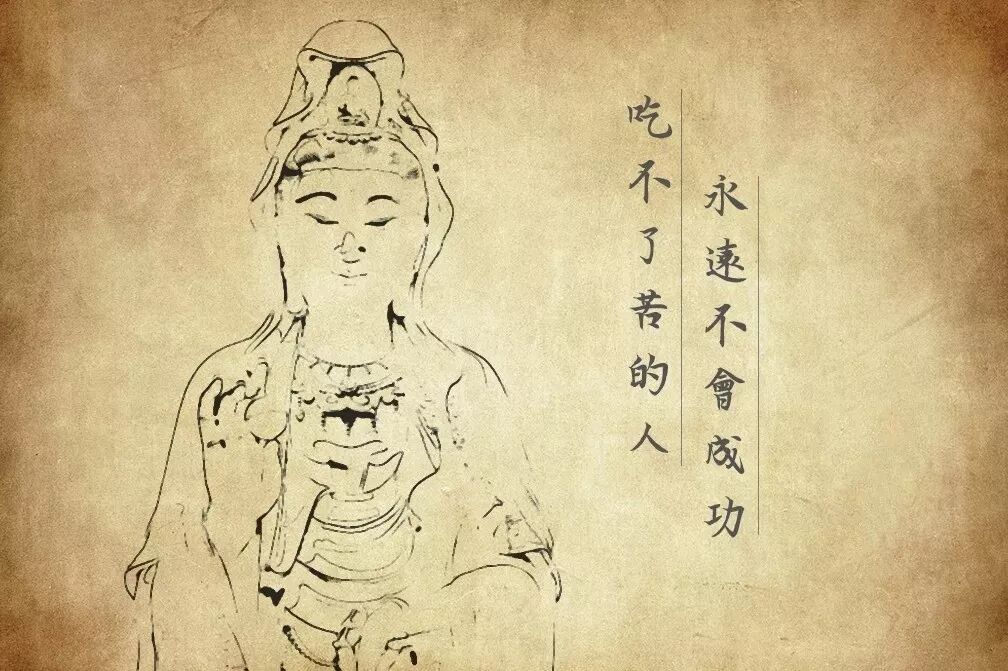 吃不了苦的人
永遠不會成功